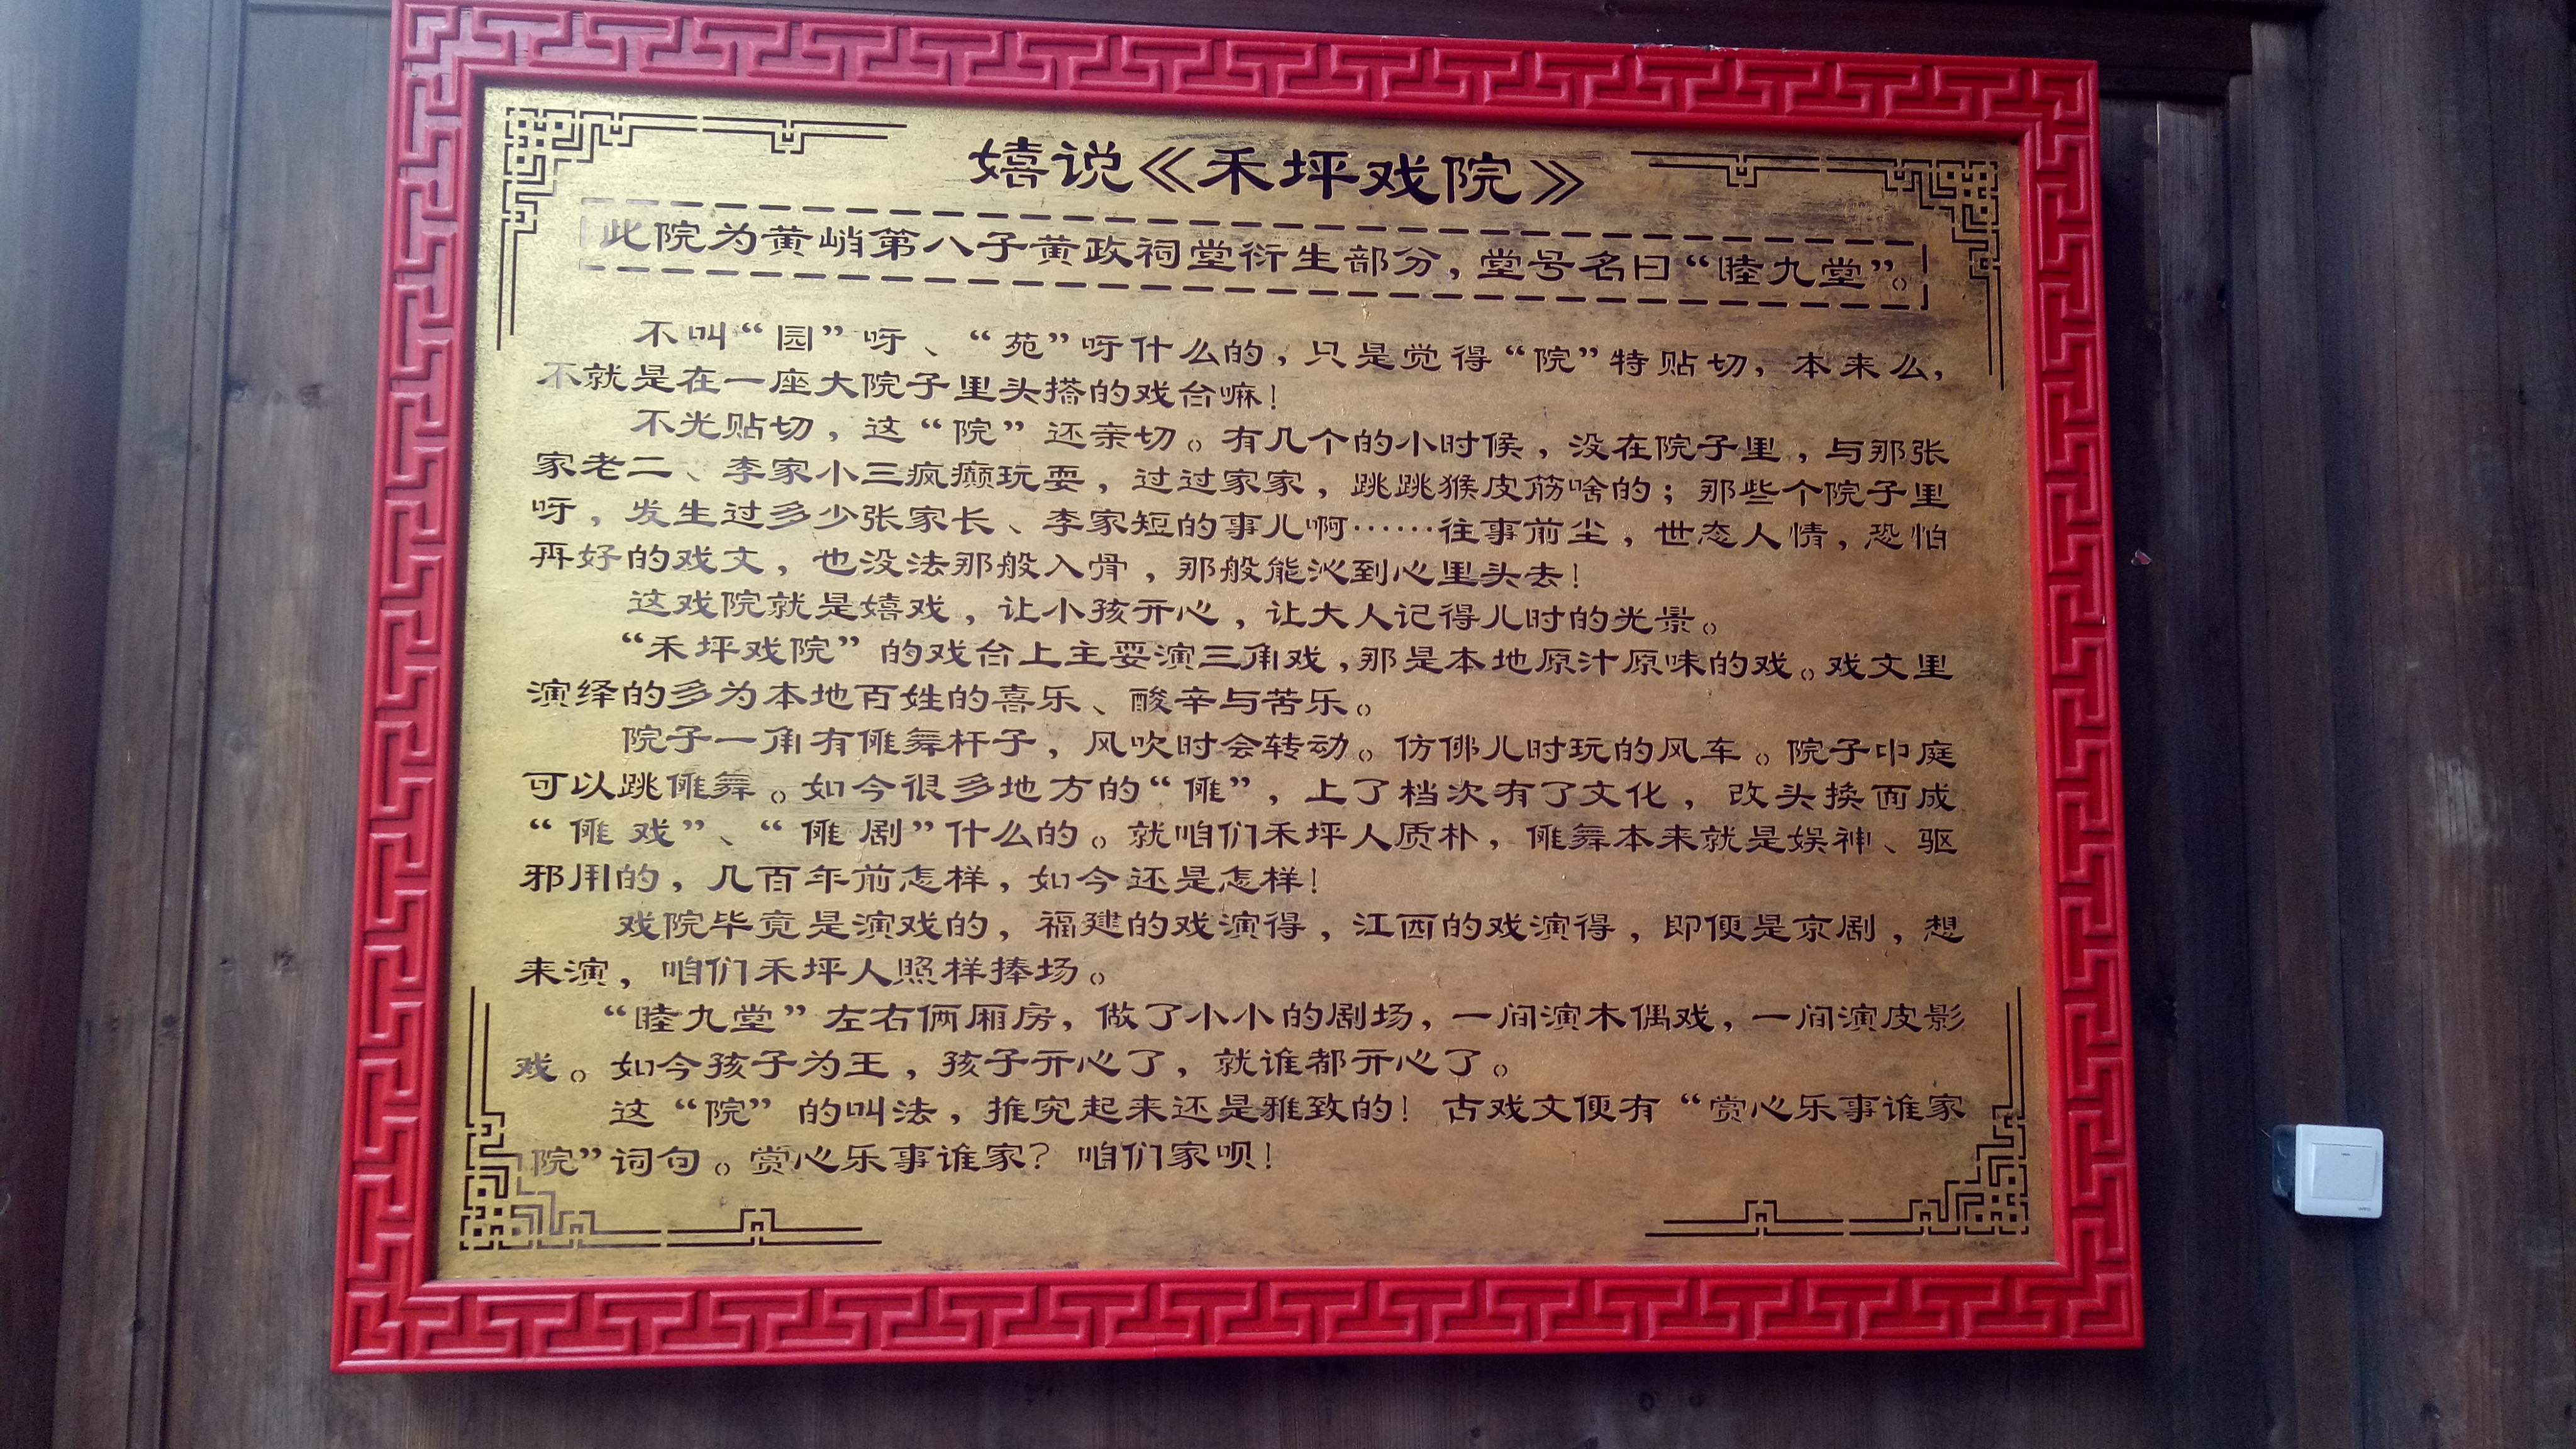 嬉说《禾坪戏院》
此院为黄峭第八子黄政祠堂衍生部分，堂号名曰“睦九堂”。
不叫“园”呀、“苑”呀什么的，只是觉得“院”特贴切，本来么，
不就是在一座大院子里头搭的戏台嘛！
不光贴切，这“院”还亲切。有几个的小时候，没在院子里，与那张
家老二、李家小三疯癫玩耍，过过家家，跳跳猴皮筋啥的；那些个院子里
呀，发生过多少张家长、李家短的事儿啊……往事前尘，世态人情，恐怕
再好的戏文，也没法那般入骨，那般能沁到心里头去！
这戏院就是嬉戏，让小孩开心，让大人记得儿时的光景。
“禾坪戏院”的戏台上主要演三角戏，那是本地原汁原味的戏。戏文里
演绎的多为本地百姓的喜乐、酸辛与苦乐。
院子一角有傩舞杆子，风吹时会转动。仿佛儿时玩的风车。院子中庭
可以跳傩舞。如今很多地方的“傩”，上了档次有了文化，改头换面成
“傩戏”、“傩剧”什么的。就咱们禾坪人质朴，傩舞本来就是娱神、驱
邪用的，几百年前怎样，如今还是怎样！
戏院毕竟是演戏的，福建的戏演得，江西的戏演得，即便是京剧，想
来演，咱们禾坪人照样捧场。
“睦九堂”左右俩厢房，做了小小的剧场，一间演木偶戏，一间演皮影
戏。如今孩子为王，孩子开心了，就谁都开心了。
这“院”的叫法，推究起来还是雅致的！古戏文便有“赏心乐事谁家
院”词句。赏心乐事谁家？咱们家呗！